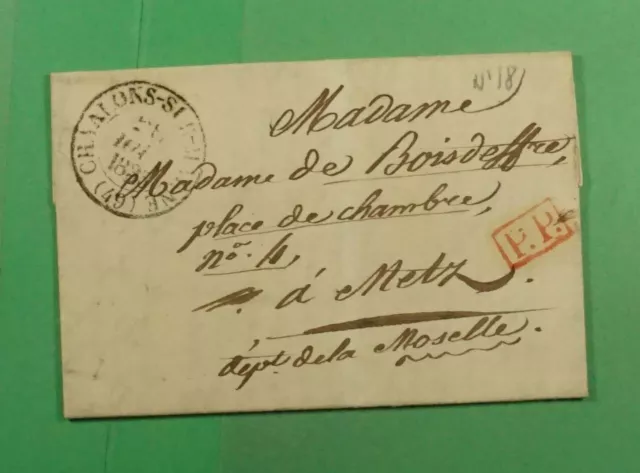 CHAALONS-SUR-MARNE (49)
n°18
Madame
Madame de Boisdeffre,
place de chambre,
no. 4,
P.P.
à Metz.
dépt. de la Moselle.